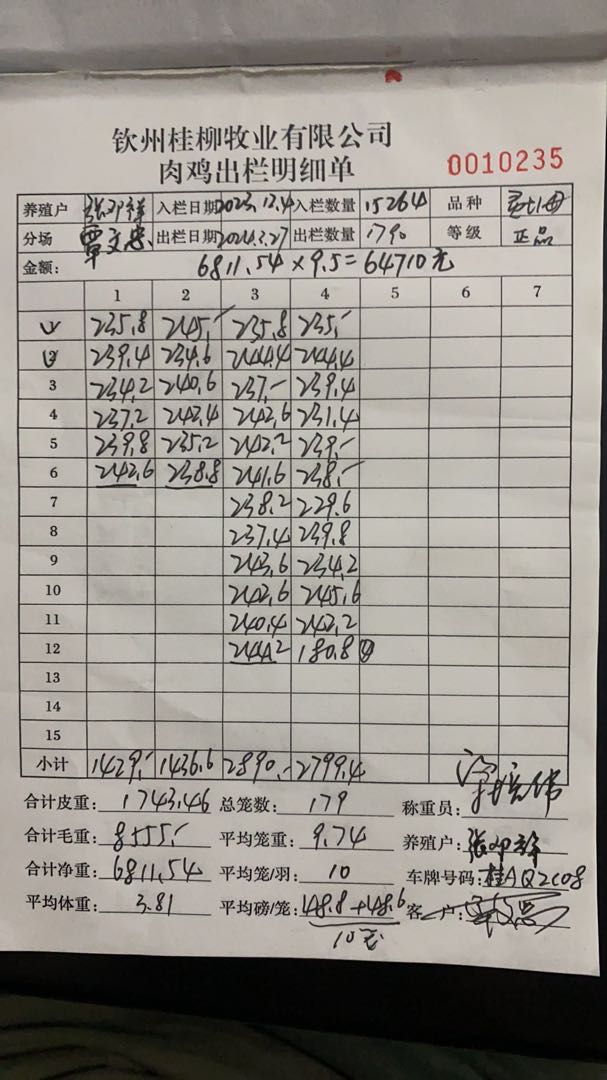 钦州桂柳牧业有限公司
肉鸡出栏明细单 0010235
养殖户 入栏日期 2023.12.4 入栏数量 15264 品种
分场 覃文忠 出栏日期 2024.3.27 出栏数量 1790 等级 正品
金额: 6811.54×9.5=64710元
1 2 3 4 5 6 7
1 235.8 245.- 235.8 235.-
2 239.4 234.6 244.4 244.4
3 234.2 240.6 237.- 239.4
4 237.2 242.4 242.6 231.4
5 239.8 235.2 242.2 239.-
6 242.6 238.8 241.6 238.-
7 238.2 229.6
8 237.4 239.8
9 243.6 234.2
10 242.6 245.6
11 240.4 242.2
12 244.2 180.8
13
14
15
小计 1429.- 1436.6 2890.- 2799.4
合计皮重: 1743.46 总笼数: 179 称重员:
合计毛重: 8555.- 平均笼重: 9.74 养殖户:
合计净重: 6811.54 平均笼/羽: 10 车牌号码: 桂AQ2C08
平均体重: 3.81 平均磅/笼: 148.8+148.6 客 户:
10笼